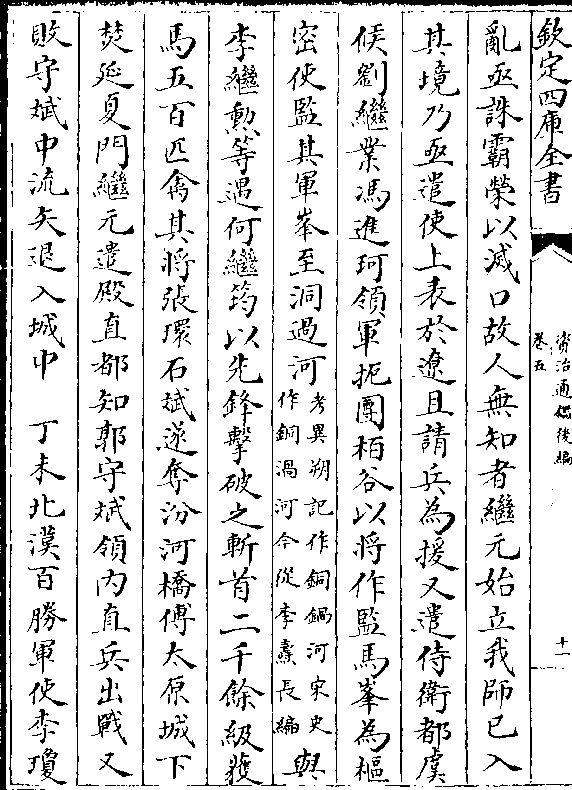 欽定四庫全書
資治通鑑後編
卷五
十一
亂亟誅霸榮以滅口故人無知者繼元始立我師已入
其境乃亟遣使上表於遼且請兵為援又遣侍衛都虞
候劉繼業馮進珂領軍扼團栢谷以將作監馬峯為樞
密使監其軍峯至洞過河
考異朔記作銅鍋河宋史
作銅渦河今從李燾長編
與
李繼勲等遇何繼筠以先鋒擊破之斬首二千餘級獲
馬五百匹禽其將張環石斌遂奪汾河橋傅太原城下
焚延夏門繼元遣殿直都知郭守斌領內直兵出戰又
敗守斌中流矢退入城中　丁未北漢百勝軍使李瓊